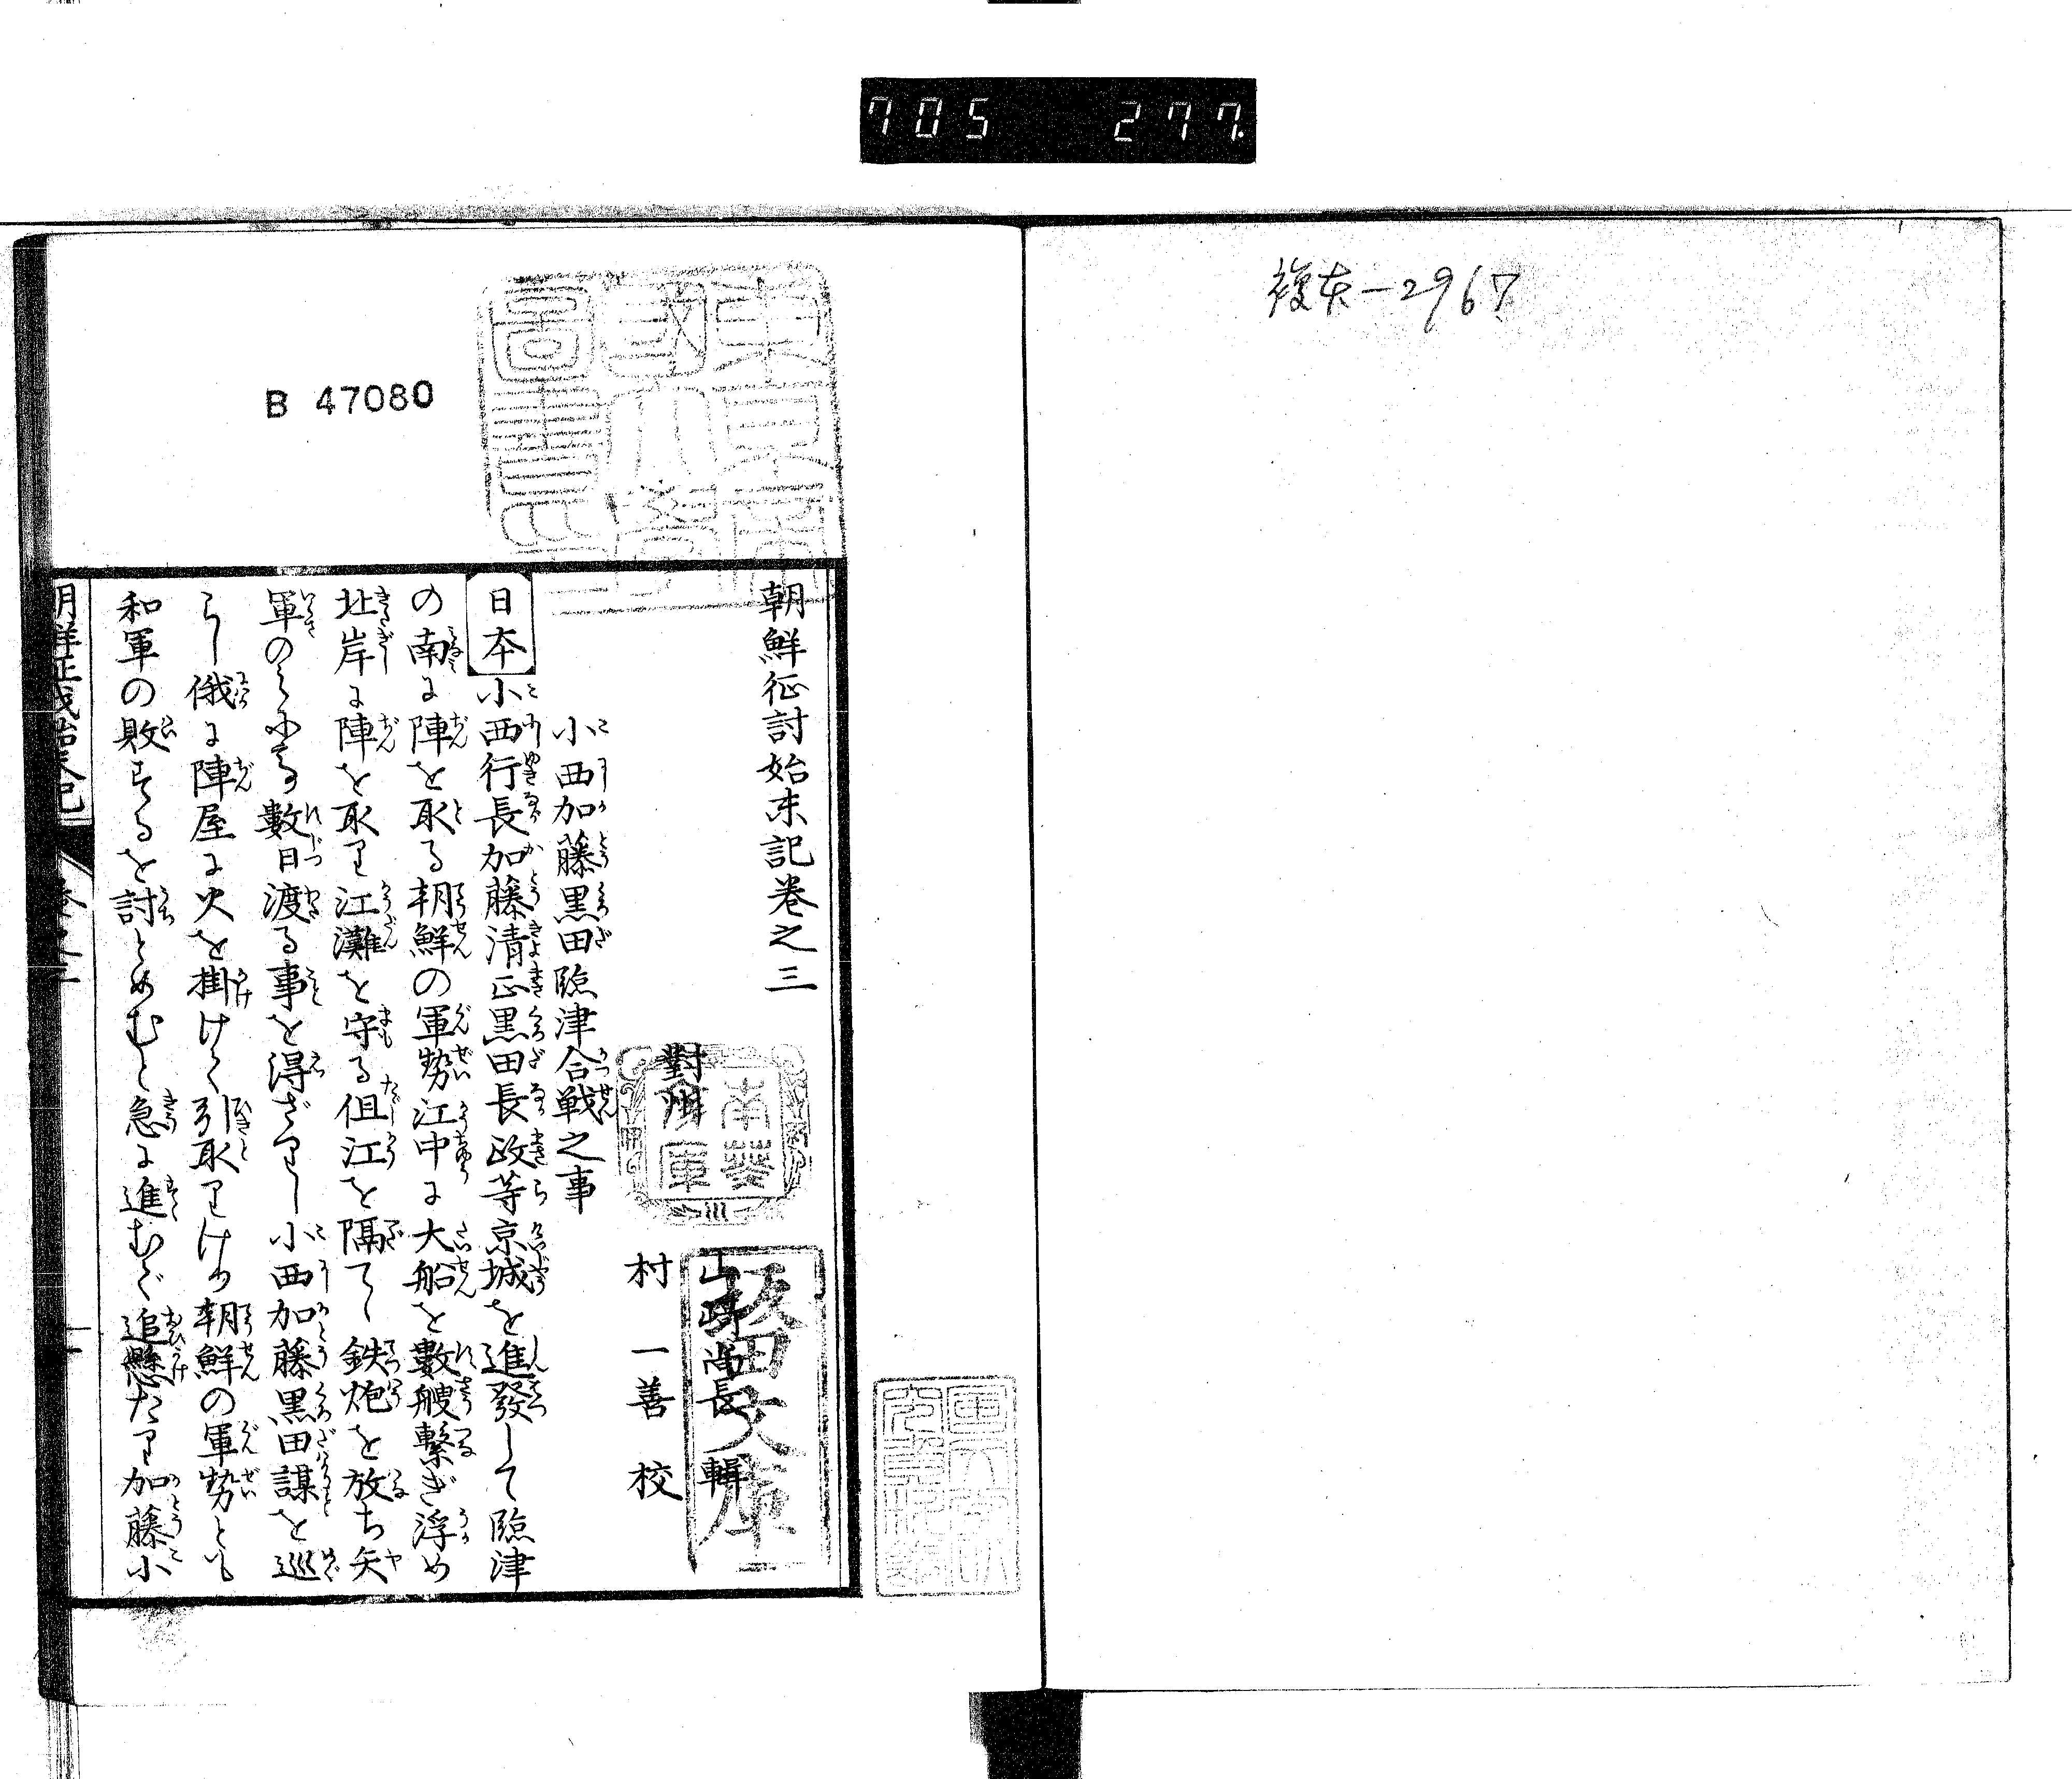 705 277
複本-2967
B 47080
朝鮮征討始末記巻之三
對州
山崎尚長輯
村一善校
小西加藤黒田臨津合戦之事
日本小西行長加藤清正黒田長政等京城を進發して臨津
の南に陣を取る朝鮮の軍勢江中に大船を數艘繋ぎ浮め
北岸に陣を取り江灘を守る但江を隔て鉄炮を放ち矢
軍のみにて數日渡る事を得ざりし小西加藤黒田謀を巡
らし俄に陣屋に火を掛けて引取りけり朝鮮の軍勢とも
和軍の敗するを討とめむと急に進むで追懸たり加藤小